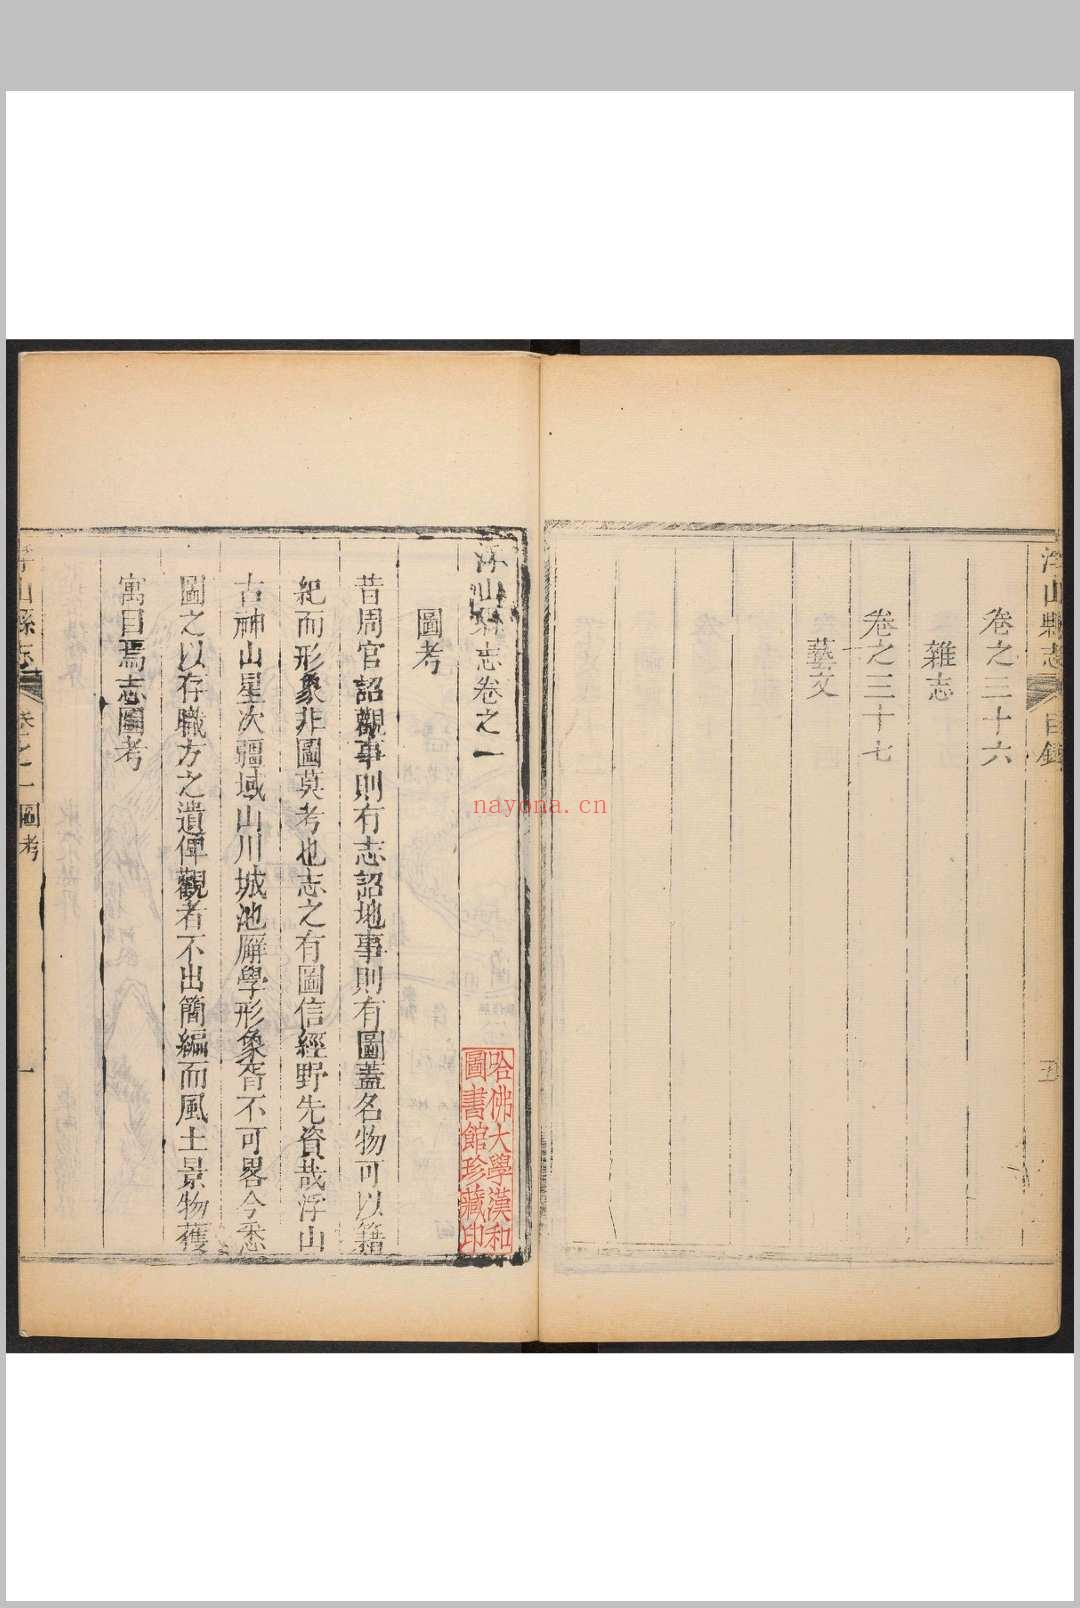 浮山縣志
目錄
五
卷之三十六
雜志
卷之三十七
藝文
浮山縣志卷之一
圖考
昔周官詔觀事則有志詔地事則有圖蓋名物可以籍
紀而形象非圖莫考也志之有圖信經野先資哉浮山
古神山星次疆域山川城池廨學形象胥不可畧今悉
圖之以存職方之遺俾觀者不出簡編而風土景物獲
寓目焉志圖考
浮山縣志
卷之一
圖考
一
哈佛大學漢和
圖書館珍藏印
nayona.cn